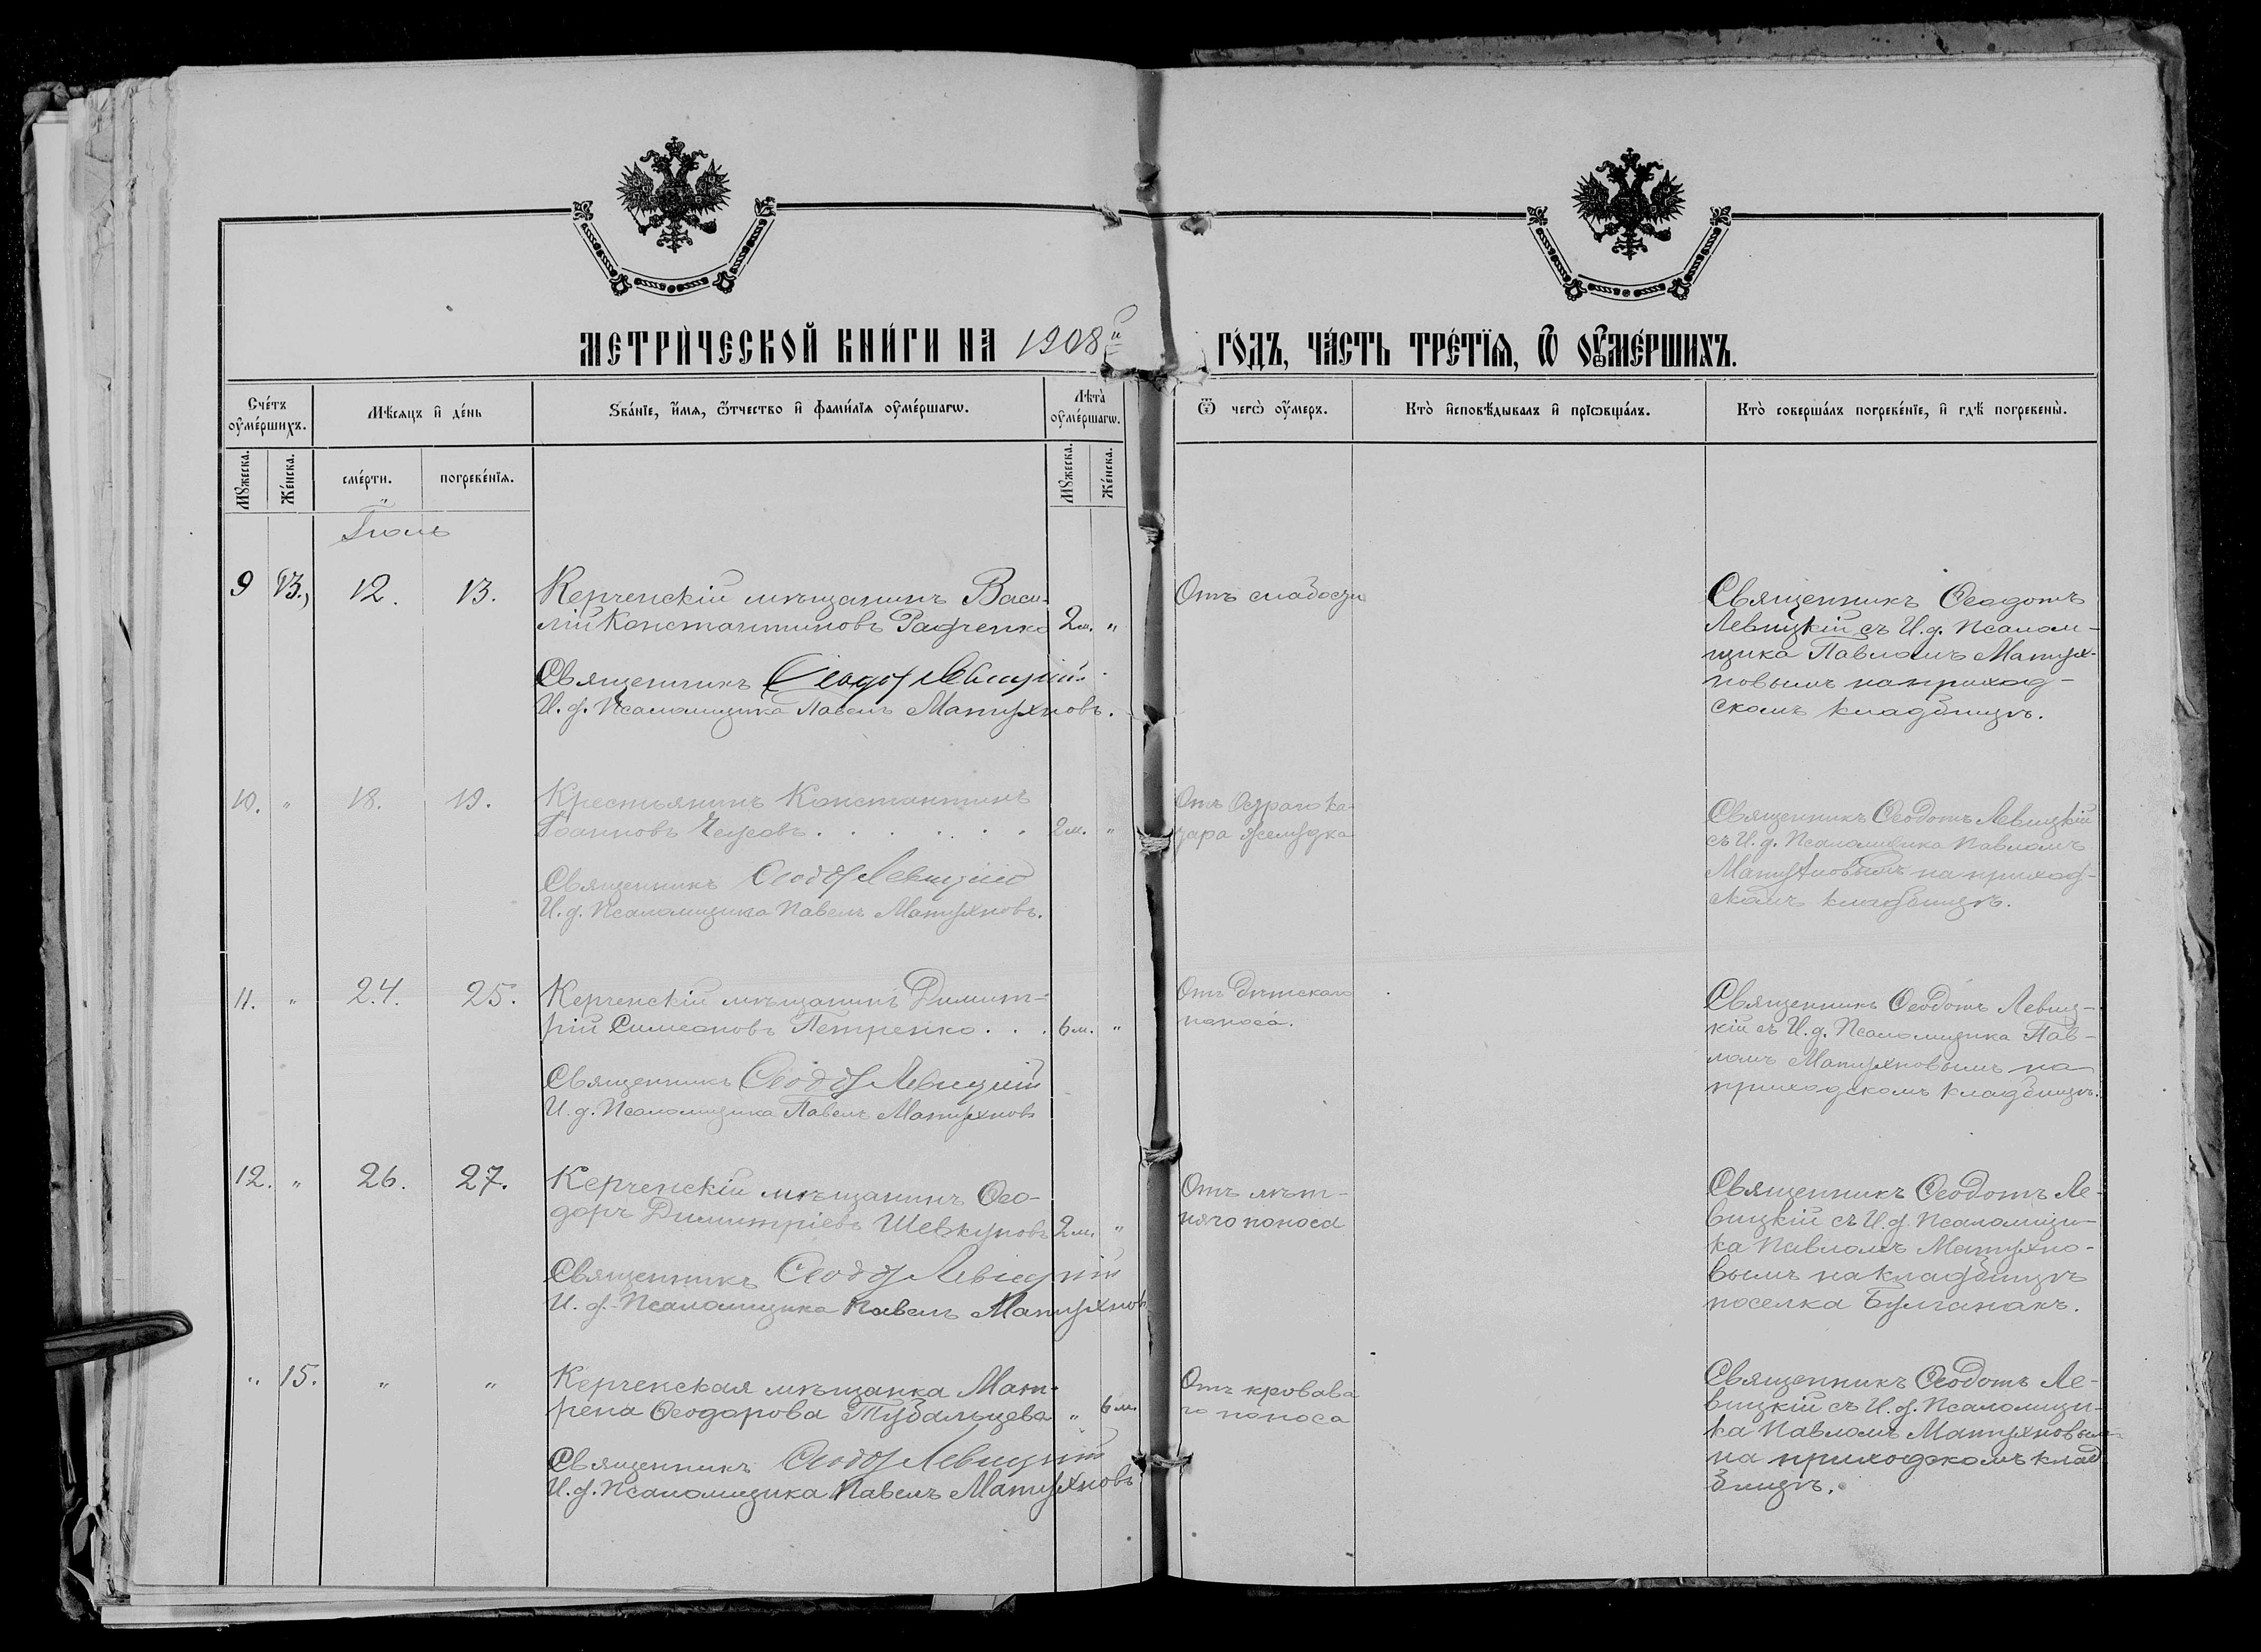 МЕТРИ́ЧЕСКОЙ КНИ́ГИ НА 1908й ГО́ДЪ, ЧА́СТЬ ТРЕ́ТЇѦ, Ѡ҆ ОУ҆МЕ́РШИХЪ.
Сче́тъ оу҆ме́ршихъ.
Мѣ́сяцъ и҆ де́нь
Ѕва́нїе, и҆́мя, ѻ҆́тчество и҆ фами́лїя оу҆ме́ршагѡ.
Лѣ́та оу҆ме́ршагѡ.
Ѿ чегѡ̀ оу҆́меръ.
Кто̀ и҆сповѣ́дывалъ и҆ прїѡбща́лъ.
Кто̀ соверша́лъ погребе́нїе, и҆ гдѣ̀ погребены̀.
Мꙋ́жеска.
Же́нска.
сме́рти.
погребе́нїя.
Мꙋ́жеска.
Же́нска.
Іюль
9 13., 12. 13.
Керченскій мѣщанинъ Васи-
лій Константиновъ Радченко 2м. "
Священникъ Ѳеодотъ Левицкій
И. д. Псаломщика Павелъ Матухновъ.
Отъ слабости
Священникъ Ѳеодотъ
Левицкій съ И. д. Псалом-
щика Павломъ Матух-
новымъ на приход-
скомъ кладбищѣ.
10. " 18. 19.
Крестьянинъ Константинъ
Іоанновъ Чусовъ . . . . . . 2м. "
Священникъ Ѳеодотъ Левицкій
И. д. Псаломщика Павелъ Матухновъ.
Отъ Остраго ка-
тара желудка
Священникъ Ѳеодотъ Левицкій
съ И. д. Псаломщика Павломъ
Матухновымъ на приход-
скомъ кладбищѣ.
11. " 24. 25.
Керченскій мѣщанинъ Димит-
рій Симеоновъ Петренко . . . 6м. "
Священникъ Ѳеодотъ Левицкій
И. д. Псаломщика Павелъ Матухновъ
Отъ Дѣтскаго
поноса.
Священникъ Ѳеодотъ Левиц-
кій съ И. д. Псаломщика Пав-
ломъ Матухновымъ на
приходскомъ кладбищѣ.
12. " 26. 27.
Керченскій мѣщанинъ Ѳео-
доръ Димитріевъ Шевкуновъ 2м. "
Священникъ Ѳеодотъ Левицкій
И. д. Псаломщика Павелъ Матухновъ
Отъ лѣт-
няго поноса
Священникъ Ѳеодотъ Ле-
вицкій съ И. д. Псаломщи-
ка Павломъ Матухно-
вымъ на кладбищѣ
поселка Булганакъ.
" 15. " "
Керченская мѣщанка Мат-
рена Ѳеодорова Тубальцева " 6м.
Священникъ Ѳеодотъ Левицкій
И. д. Псаломщика Павелъ Матухновъ
Отъ кровава
го поноса
Священникъ Ѳеодотъ Ле-
вицкій съ И. д. Псаломщи-
ка Павломъ Матухновымъ
на приходскомъ клад
бищѣ.